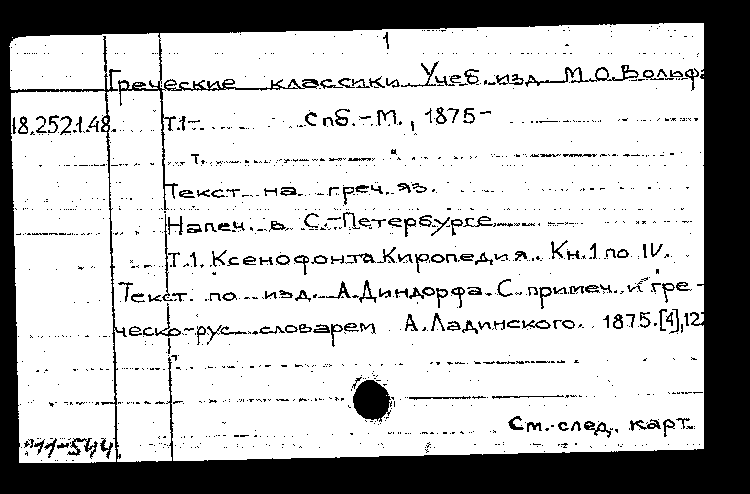 1
Греческие классики. Учеб. изд. М.О. Вольфа
18.252.1.48. Т.1– Спб.–М., 1875–
Текст на греч. яз.
Напеч. в С.-Петербурге
Т.1. Ксенофонта Киропедия. Кн. 1 по IV.
Текст по изд. А. Диндорфа. С примеч. и гре-
ческо-рус. словарем А. Ладинского. 1875. [4], 122
См. след. карт.
11-544.